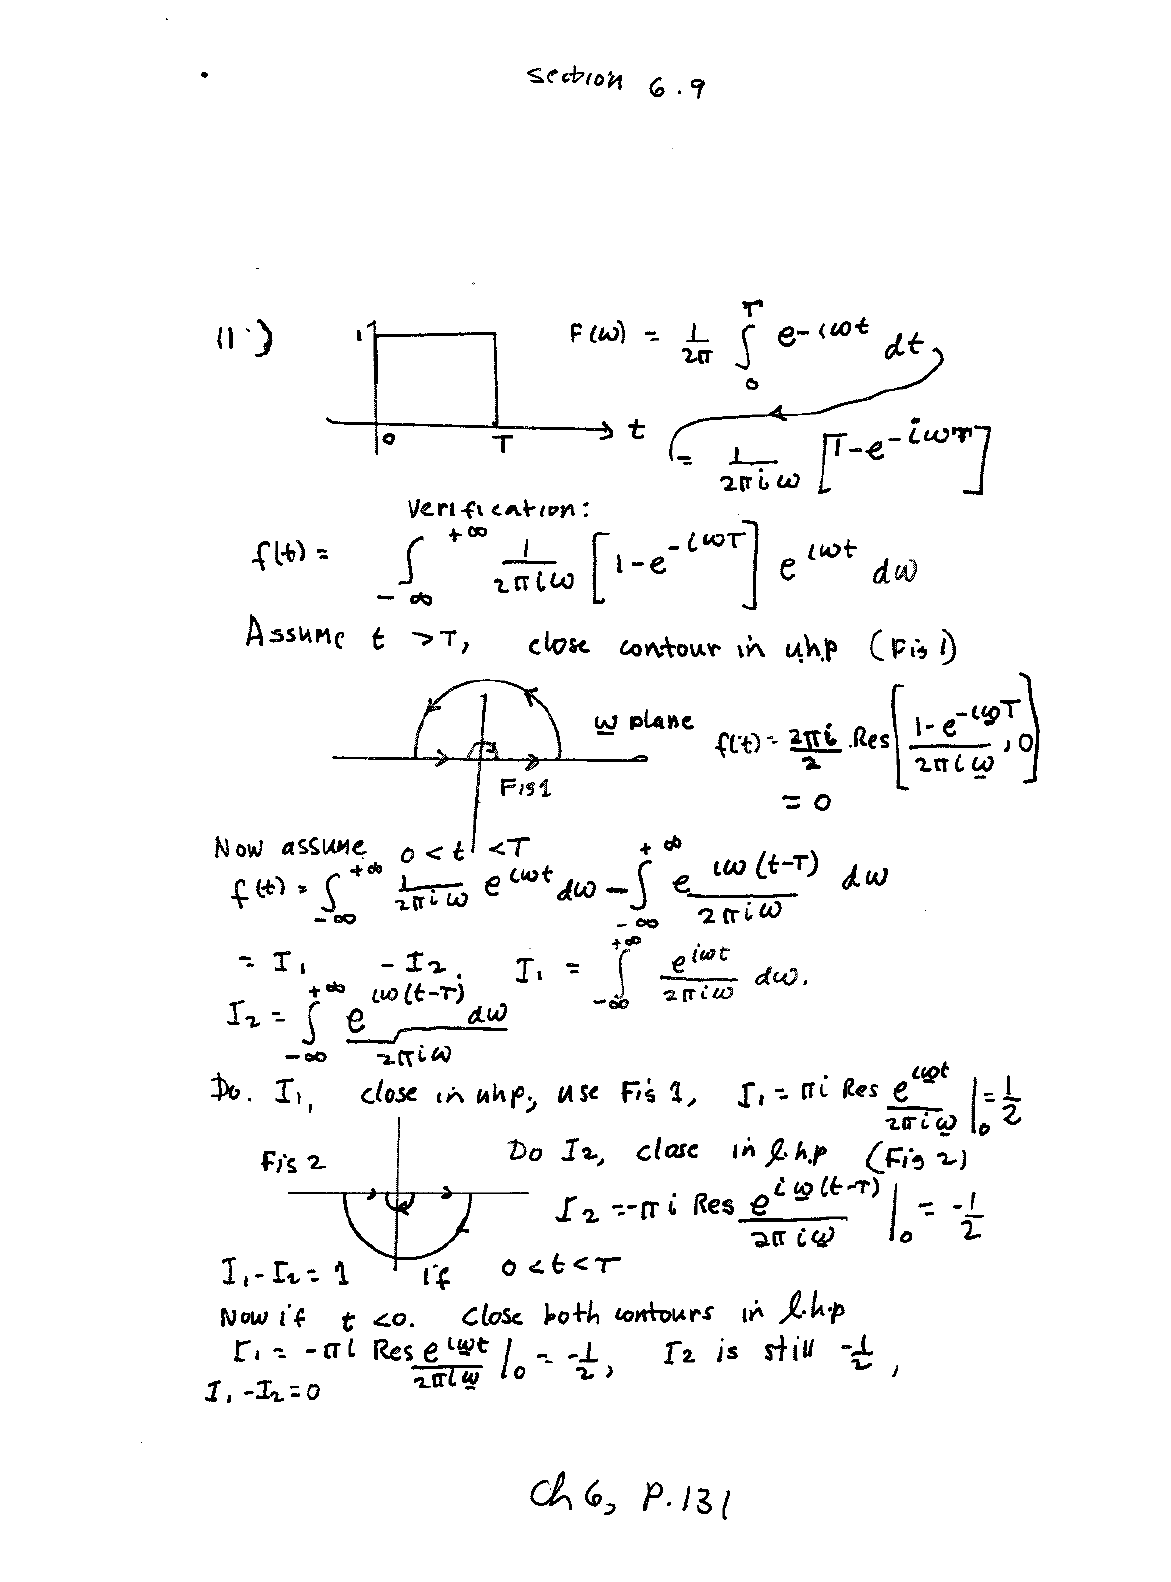 section 6.9
11.) 1 0 T t F(ω) = 1/2π ∫_0^T e^{-iωt} dt,
= 1/2πiω [1-e^{-iωT}]
Verification:
f(t) = ∫_{-∞}^{+∞} 1/2πiω [1-e^{-iωT}] e^{iωt} dω
Assume t >T, close contour in u.h.p (Fig 1)
w plane f(t) = 2πi/2 .Res[1-e^{-iωT}/2πiω, 0]
Fig 1
= 0
Now assume 0<t<T
f(t) = ∫_{-∞}^{+∞} 1/2πiω e^{iωt} dω - ∫_{-∞}^{+∞} e^{iω(t-T)}/2πiω dω
= I₁ - I₂. I₁ = ∫_{-∞}^{+∞} e^{iωt}/2πiω dω.
I₂ = ∫_{-∞}^{+∞} e^{iω(t-T)}/2πiω dω
Do. I₁, close in uhp, use Fig 1, I₁ = πi Res e^{iωt}/2πiω |_0 = 1/2
Fig 2 Do I₂, close in l.h.p (Fig 2)
I₂ = -πi Res e^{iω(t-T)}/2πiω |_0 = -1/2
I₁-I₂ = 1 if 0<t<T
Now if t <0. Close both contours in l.h.p
I₁ = -πi Res e^{iωt}/2πiω |_0 = -1/2, I₂ is still -1/2,
I₁-I₂=0
Ch 6, P.131